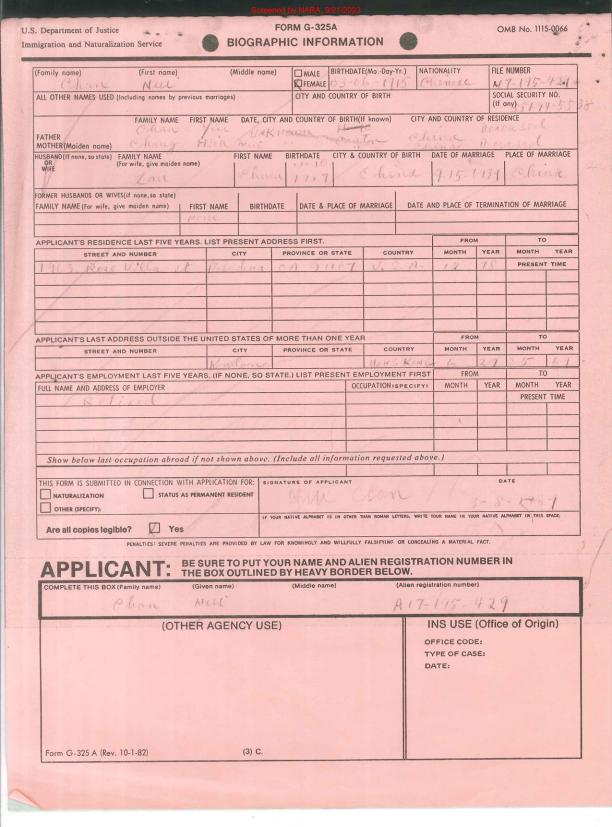 Screened by NARA, 9/21/2023
U.S. Department of Justice
Immigration and Naturalization Service
FORM G-325A
BIOGRAPHIC INFORMATION
OMB No. 1115-0066
(Family name) (First name) (Middle name) MALE FEMALE BIRTHDATE(Mo.-Day-Yr.) NATIONALITY FILE NUMBER
Chan 03-06-1915 Chinese A17-195-429
ALL OTHER NAMES USED (Including names by previous marriages) CITY AND COUNTRY OF BIRTH SOCIAL SECURITY NO. (If any)
FAMILY NAME FIRST NAME DATE, CITY AND COUNTRY OF BIRTH(If known) CITY AND COUNTRY OF RESIDENCE
FATHER Chan Unknown China Deceased
MOTHER(Maiden name) China Deceased
HUSBAND(If none, so state) OR WIFE FAMILY NAME (For wife, give maiden name) FIRST NAME BIRTHDATE CITY & COUNTRY OF BIRTH DATE OF MARRIAGE PLACE OF MARRIAGE
China China
FORMER HUSBANDS OR WIVES(if none,so state)
FAMILY NAME (For wife, give maiden name) FIRST NAME BIRTHDATE DATE & PLACE OF MARRIAGE DATE AND PLACE OF TERMINATION OF MARRIAGE
None
APPLICANT'S RESIDENCE LAST FIVE YEARS. LIST PRESENT ADDRESS FIRST. FROM TO
STREET AND NUMBER CITY PROVINCE OR STATE COUNTRY MONTH YEAR MONTH YEAR
Rose Villa st CA 91107 U.S.A. 12 78 PRESENT TIME
APPLICANT'S LAST ADDRESS OUTSIDE THE UNITED STATES OF MORE THAN ONE YEAR FROM TO
STREET AND NUMBER CITY PROVINCE OR STATE COUNTRY MONTH YEAR MONTH YEAR
Hong Kong
APPLICANT'S EMPLOYMENT LAST FIVE YEARS. (IF NONE, SO STATE.) LIST PRESENT EMPLOYMENT FIRST FROM TO
FULL NAME AND ADDRESS OF EMPLOYER OCCUPATION(SPECIFY) MONTH YEAR MONTH YEAR
Retired PRESENT TIME
Show below last occupation abroad if not shown above. (Include all information requested above.)
THIS FORM IS SUBMITTED IN CONNECTION WITH APPLICATION FOR: SIGNATURE OF APPLICANT DATE
NATURALIZATION STATUS AS PERMANENT RESIDENT
OTHER (SPECIFY):
(IF YOUR NATIVE ALPHABET IS IN OTHER THAN ROMAN LETTERS, WRITE YOUR NAME IN YOUR NATIVE ALPHABET IN THIS SPACE)
Are all copies legible? Yes
PENALTIES: SEVERE PENALTIES ARE PROVIDED BY LAW FOR KNOWINGLY AND WILLFULLY FALSIFYING OR CONCEALING A MATERIAL FACT.
APPLICANT: BE SURE TO PUT YOUR NAME AND ALIEN REGISTRATION NUMBER IN
THE BOX OUTLINED BY HEAVY BORDER BELOW.
COMPLETE THIS BOX (Family name) (Given name) (Middle name) (Alien registration number)
Chan A17-195-429
(OTHER AGENCY USE) INS USE (Office of Origin)
OFFICE CODE:
TYPE OF CASE:
DATE:
Form G-325 A (Rev. 10-1-82) (3) C.